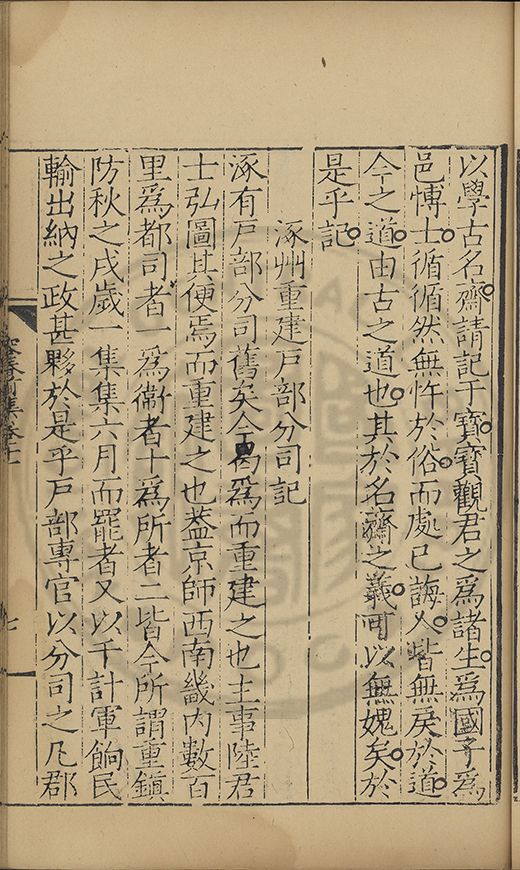 以學古名齋請記于寶寶觀君之爲諸生爲國子爲
邑愽士循循然無忤於俗而處已誨人皆無戾於道
今之道由古之道也其於名齋之義可以無媿矣於
是乎記
涿州重建戸部分司記
涿有戸部分司舊矣今曷爲而重建之也主事陸君
士弘圖其便焉而重建之也葢京師西南畿内數百
里爲都司者一爲衞者十爲所者二皆今所謂重鎮
防秋之戍歲一集集六月而罷者又以千計軍餉民
輸出納之政甚夥於是乎戸部專官以分司之凡郡
七